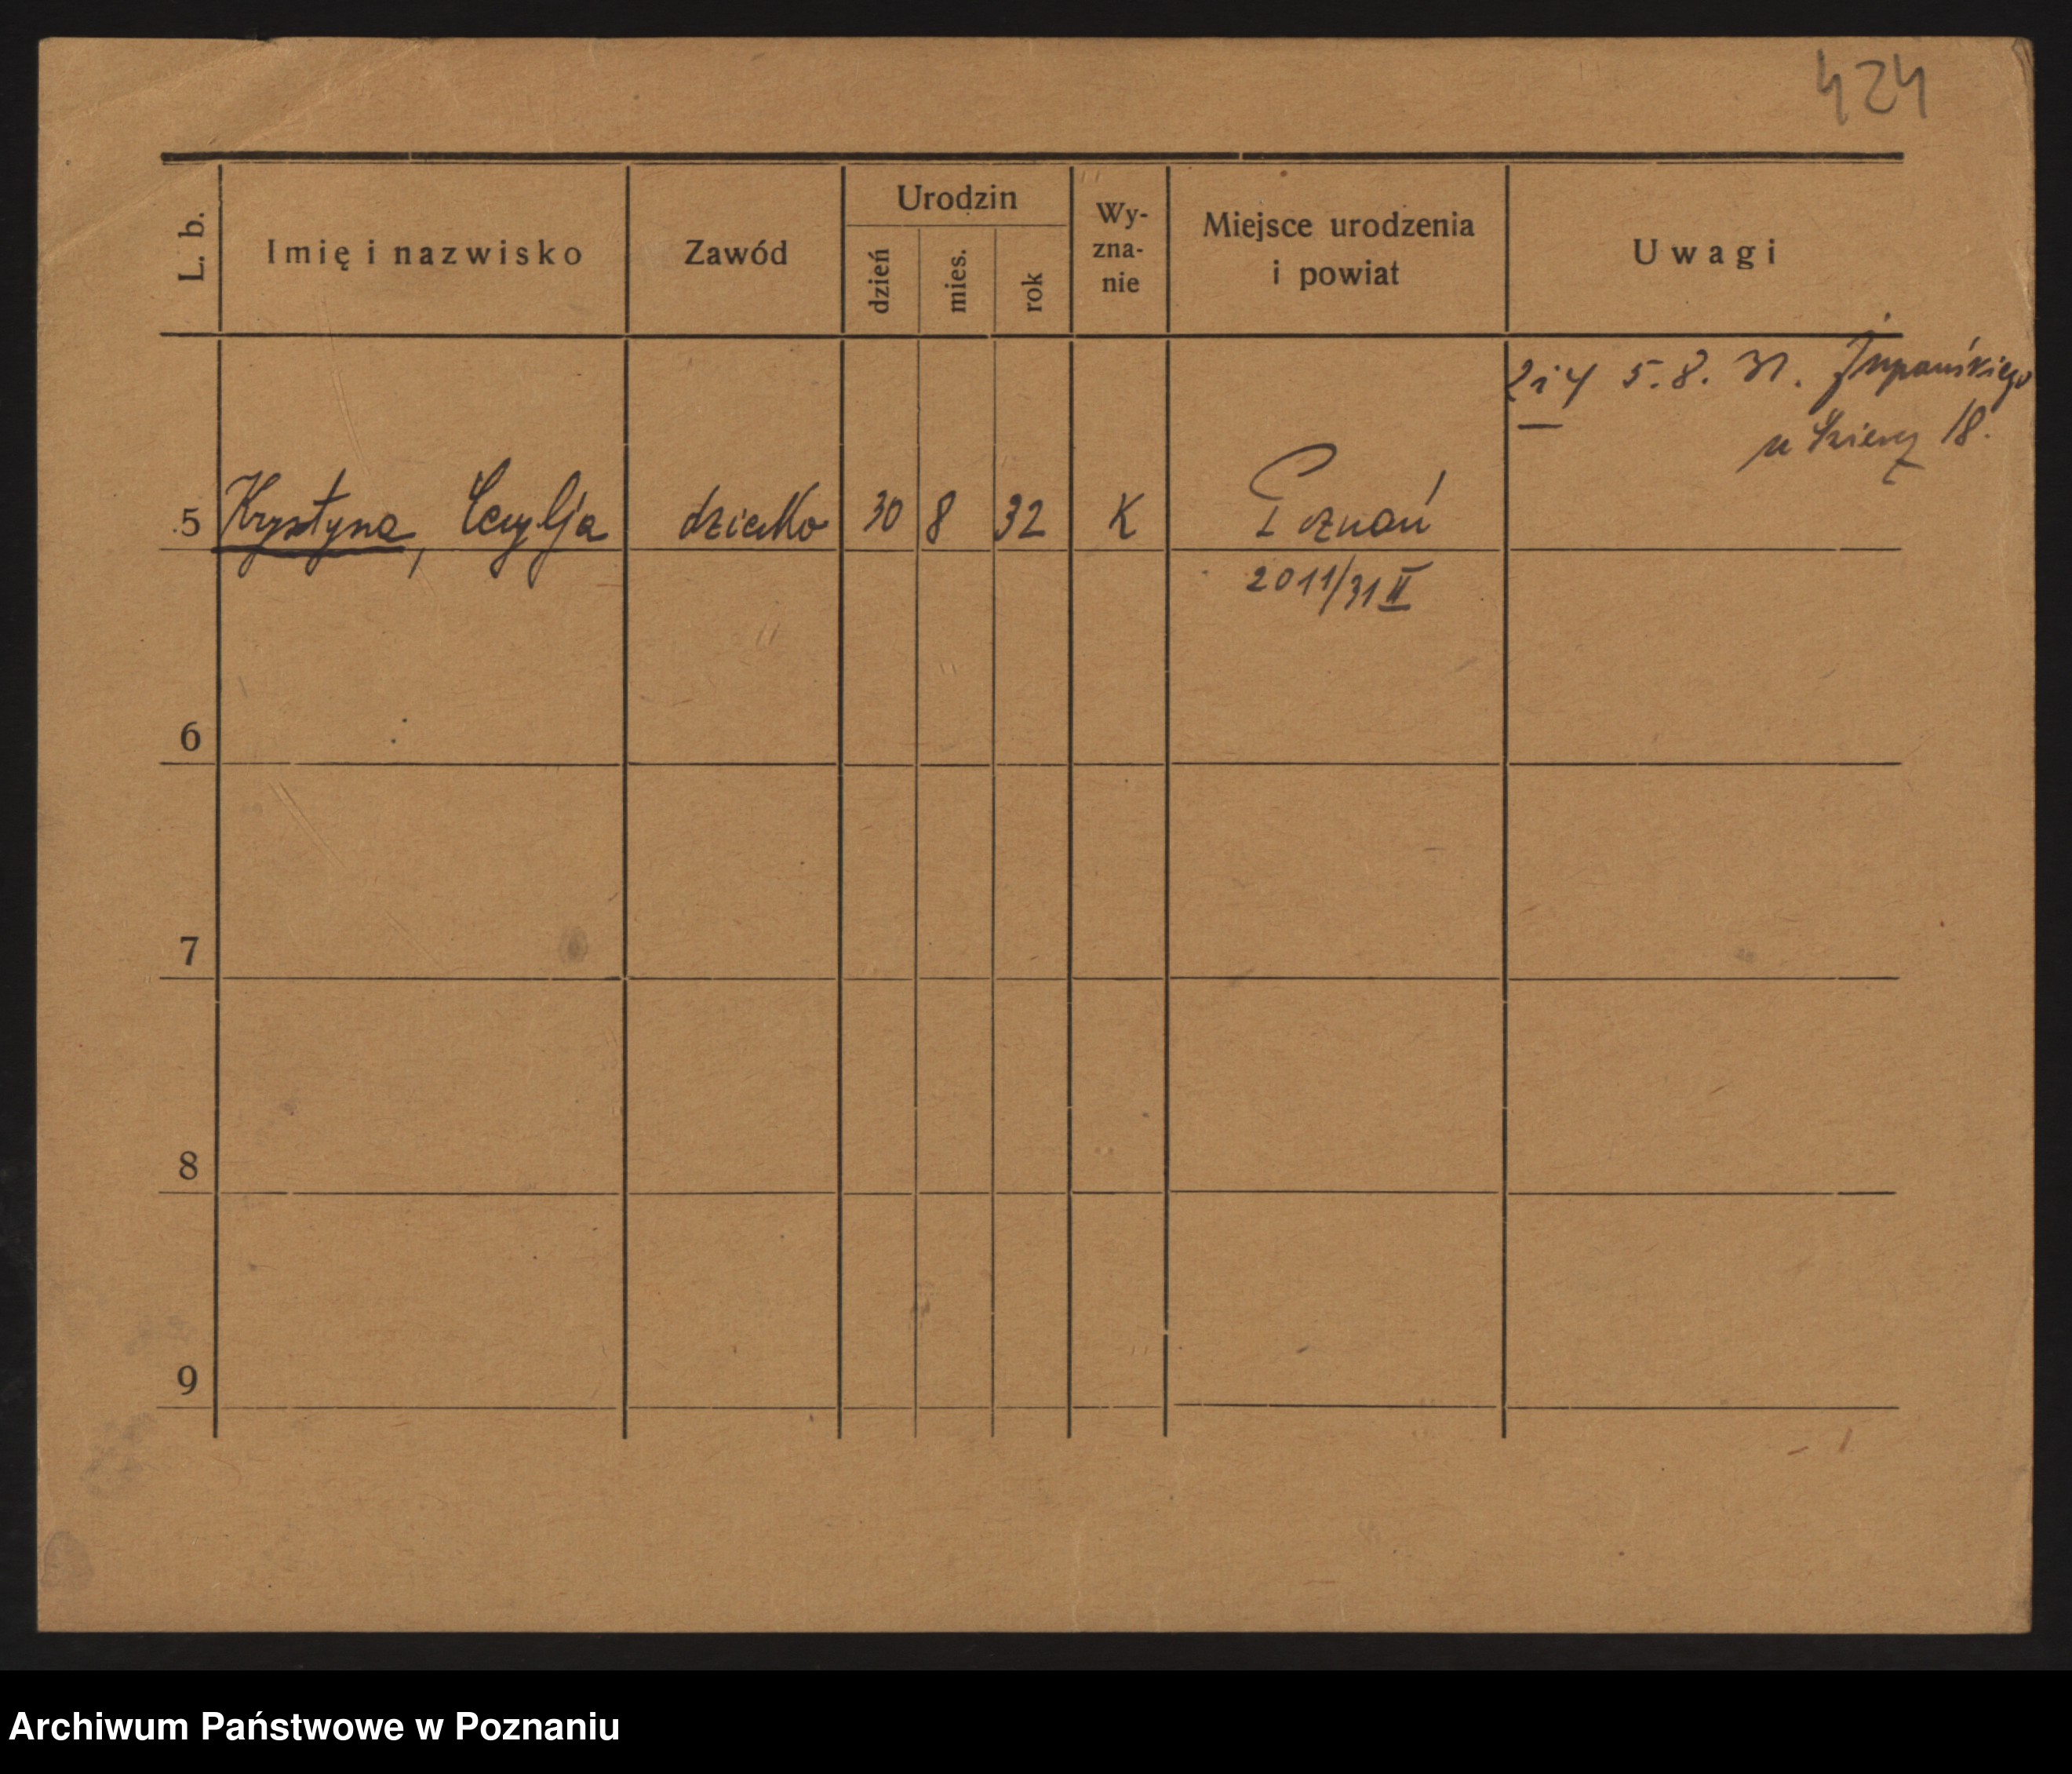 424
L. b.
Imię i nazwisko
Zawód
Urodzin
dzień
mies.
rok
Wy-
zna-
nie
Miejsce urodzenia
i powiat
Uwagi
2 i 4 5.8.31. Żupańskiego
u 18.
5 Krystyna, Cecylja dziecko 30 8 32 K Poznań
2011/31 II
6
7
8
9
Archiwum Państwowe w Poznaniu